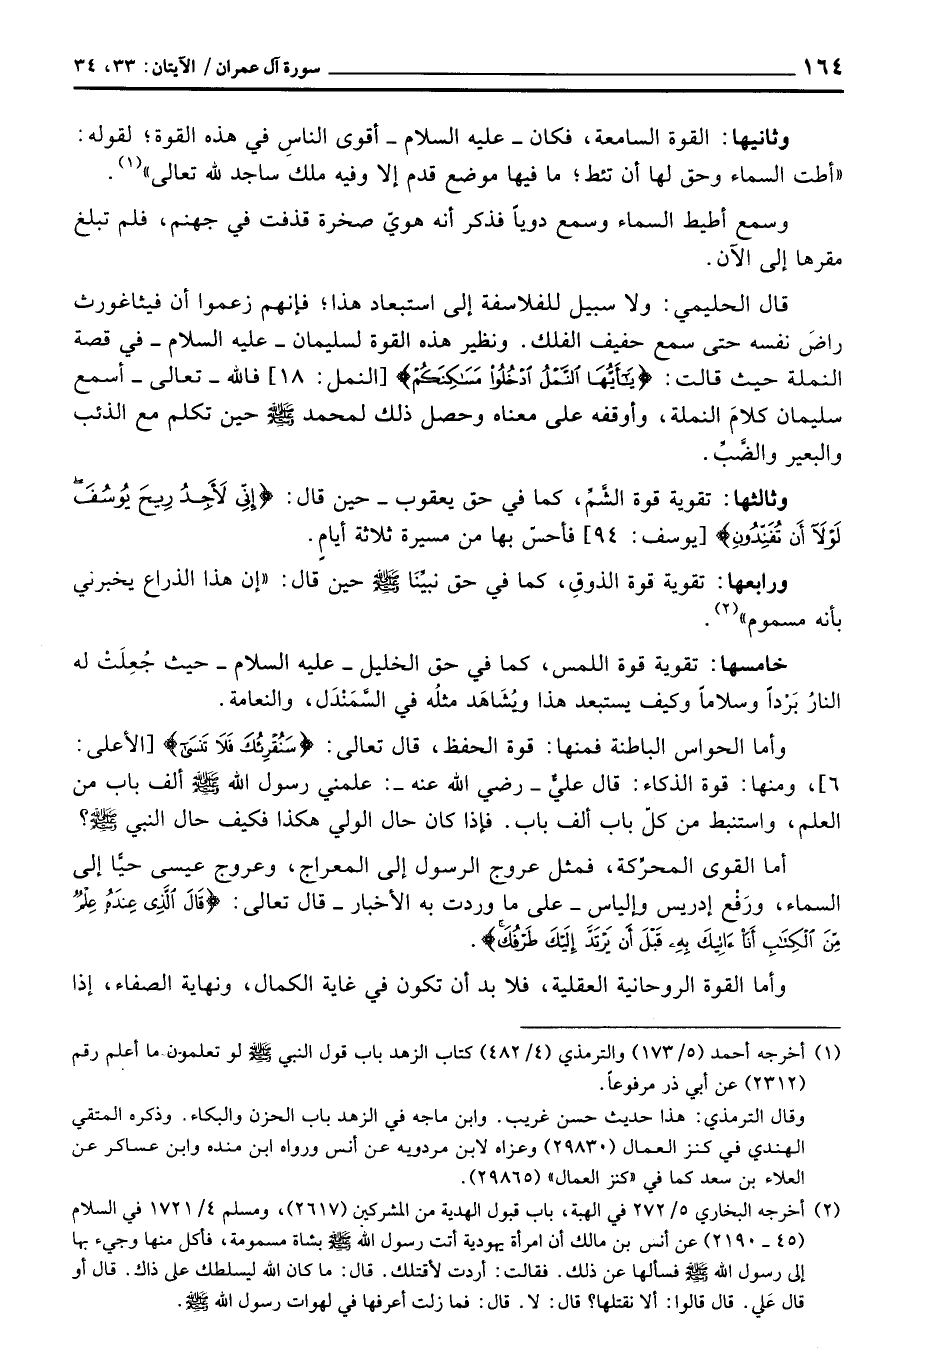 ١٦٤ ــــــــــــــــــــــــــــــ سورة آل عمران / الآيتان: ٣٣، ٣٤
وثانيها: القوة السامعة، فكان ـ عليه السلام ـ أقوى الناسِ في هذه القوة؛ لقوله:
«أطت السماء وحق لها أن تئط؛ ما فيها موضع قدم إلا وفيه ملك ساجد لله تعالى»(١).
وسمع أطيط السماء وسمع دوياً فذكر أنه هويّ صخرة قذفت في جهنم، فلم تبلغ
مقرها إلى الآن.
قال الحليمي: ولا سبيل للفلاسفة إلى استبعاد هذا؛ فإنهم زعموا أن فيثاغورث
راضَ نفسه حتى سمع حفيف الفلك. ونظير هذه القوة لسليمان ـ عليه السلام ـ في قصة
النملة حيث قالت: ﴿يَٰٓأَيُّهَا ٱلنَّمْلُ ٱدْخُلُوا۟ مَسَٰكِنَكُمْ﴾ [النمل: ١٨] فالله ـ تعالى ـ أسمع
سليمان كلامَ النملة، وأوقفه على معناه وحصل ذلك لمحمد ﷺ حين تكلم مع الذئب
والبعير والضَّبِّ.
وثالثها: تقوية قوة الشَّمِّ، كما في حق يعقوب ـ حين قال: ﴿إِنِّي لَأَجِدُ رِيحَ يُوسُفَۖ
لَوْلَآ أَن تُفَنِّدُونِ﴾ [يوسف: ٩٤] فأحسّ بها من مسيرة ثلاثة أيامٍ.
ورابعها: تقوية قوة الذوقِ، كما في حق نبيِّنَا ﷺ حين قال: «إن هذا الذراع يخبرني
بأنه مسموم»(٢).
خامسها: تقوية قوة اللمس، كما في حق الخليل ـ عليه السلام ـ حيث جُعِلَتْ له
النارُ بَرْداً وسلاماً وكيف يستبعد هذا ويُشَاهَد مثلُه في السَّمَنْدَل، والنعامة.
وأما الحواس الباطنة فمنها: قوة الحفظ، قال تعالى: ﴿سَنُقْرِئُكَ فَلَا تَنسَىٰٓ﴾ [الأعلى:
٦]، ومنها: قوة الذكاء: قال عليٌّ ـ رضي الله عنه ـ: علمني رسول الله ﷺ ألف باب من
العلم، واستنبط من كلّ باب ألف باب. فإذا كان حال الولي هكذا فكيف حال النبي ﷺ؟
أما القوى المحرِّكة، فمثل عروج الرسول إلى المعراج، وعروج عيسى حيًّا إلى
السماء، ورَفْع إدريس وإلياس ـ على ما وردت به الأخبار ـ قال تعالى: ﴿قَالَ ٱلَّذِى عِندَهُۥ عِلْمٌ
مِّنَ ٱلْكِتَٰبِ أَنَا۠ ءَاتِيكَ بِهِۦ قَبْلَ أَن يَرْتَدَّ إِلَيْكَ طَرْفُكَۚ﴾.
وأما القوة الروحانية العقلية، فلا بد أن تكون في غاية الكمال، ونهاية الصفاء، إذا
(١) أخرجه أحمد (٥/ ١٧٣) والترمذي (٤/ ٤٨٢) كتاب الزهد باب قول النبي ﷺ لو تعلمون ما أعلم رقم
(٢٣١٢) عن أبي ذر مرفوعاً.
وقال الترمذي: هذا حديث حسن غريب. وابن ماجه في الزهد باب الحزن والبكاء. وذكره المتقي
الهندي في كنز العمال (٢٩٨٣٠) وعزاه لابن مردويه عن أنس ورواه ابن منده وابن عساكر عن
العلاء بن سعد كما في «كنز العمال» (٢٩٨٦٥).
(٢) أخرجه البخاري ٥/ ٢٧٢ في الهبة، باب قبول الهدية من المشركين (٢٦١٧)، ومسلم ٤/ ١٧٢١ في السلام
(٤٥ ـ ٢١٩٠) عن أنس بن مالك أن امرأة يهودية أتت رسول الله ﷺ بشاة مسمومة، فأكل منها وجيء بها
إلى رسول الله ﷺ فسألها عن ذلك. فقالت: أردت لأقتلك. قال: ما كان الله ليسلطك على ذاك. قال أو
قال عَلي. قال قالوا: ألا نقتلها؟ قال: لا. قال: فما زلت أعرفها في لهوات رسول الله ﷺ.